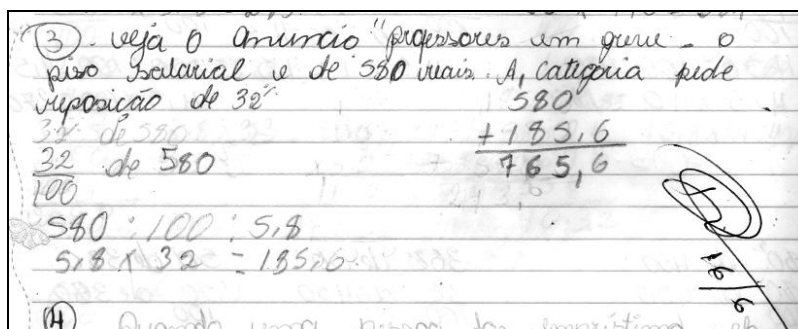 ③. veja o anuncio "professores em greve - o
piso salarial e de 580 reais. A, categoria pede
reposicão de 32%.
580
+ 185,6
765,6
32% de 580
32 de 580
100
580 : 100 : 5,8
5,8 x 32 = 185,6.
16/9
④ Quando uma pessoa faz emprestimo